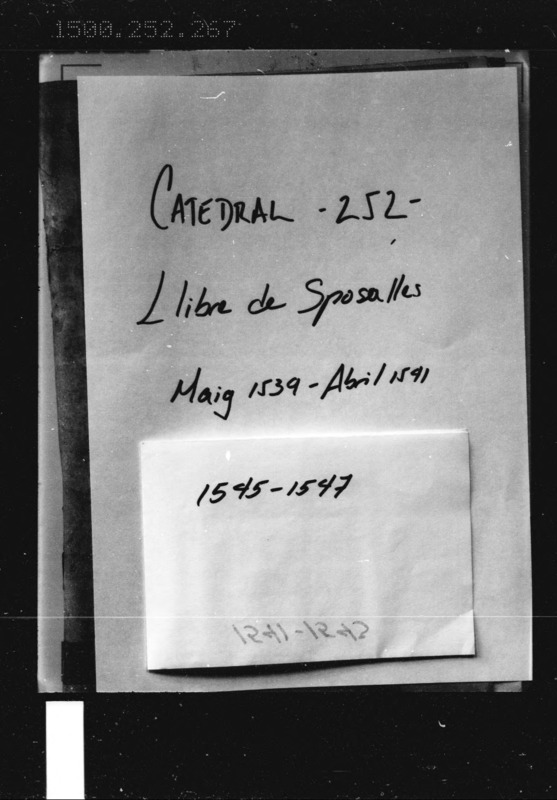 1500.252.267
CATEDRAL -252-
Llibre de Sposalles
Maig 1539 - Abril 1591
1545-1547
1541-1543